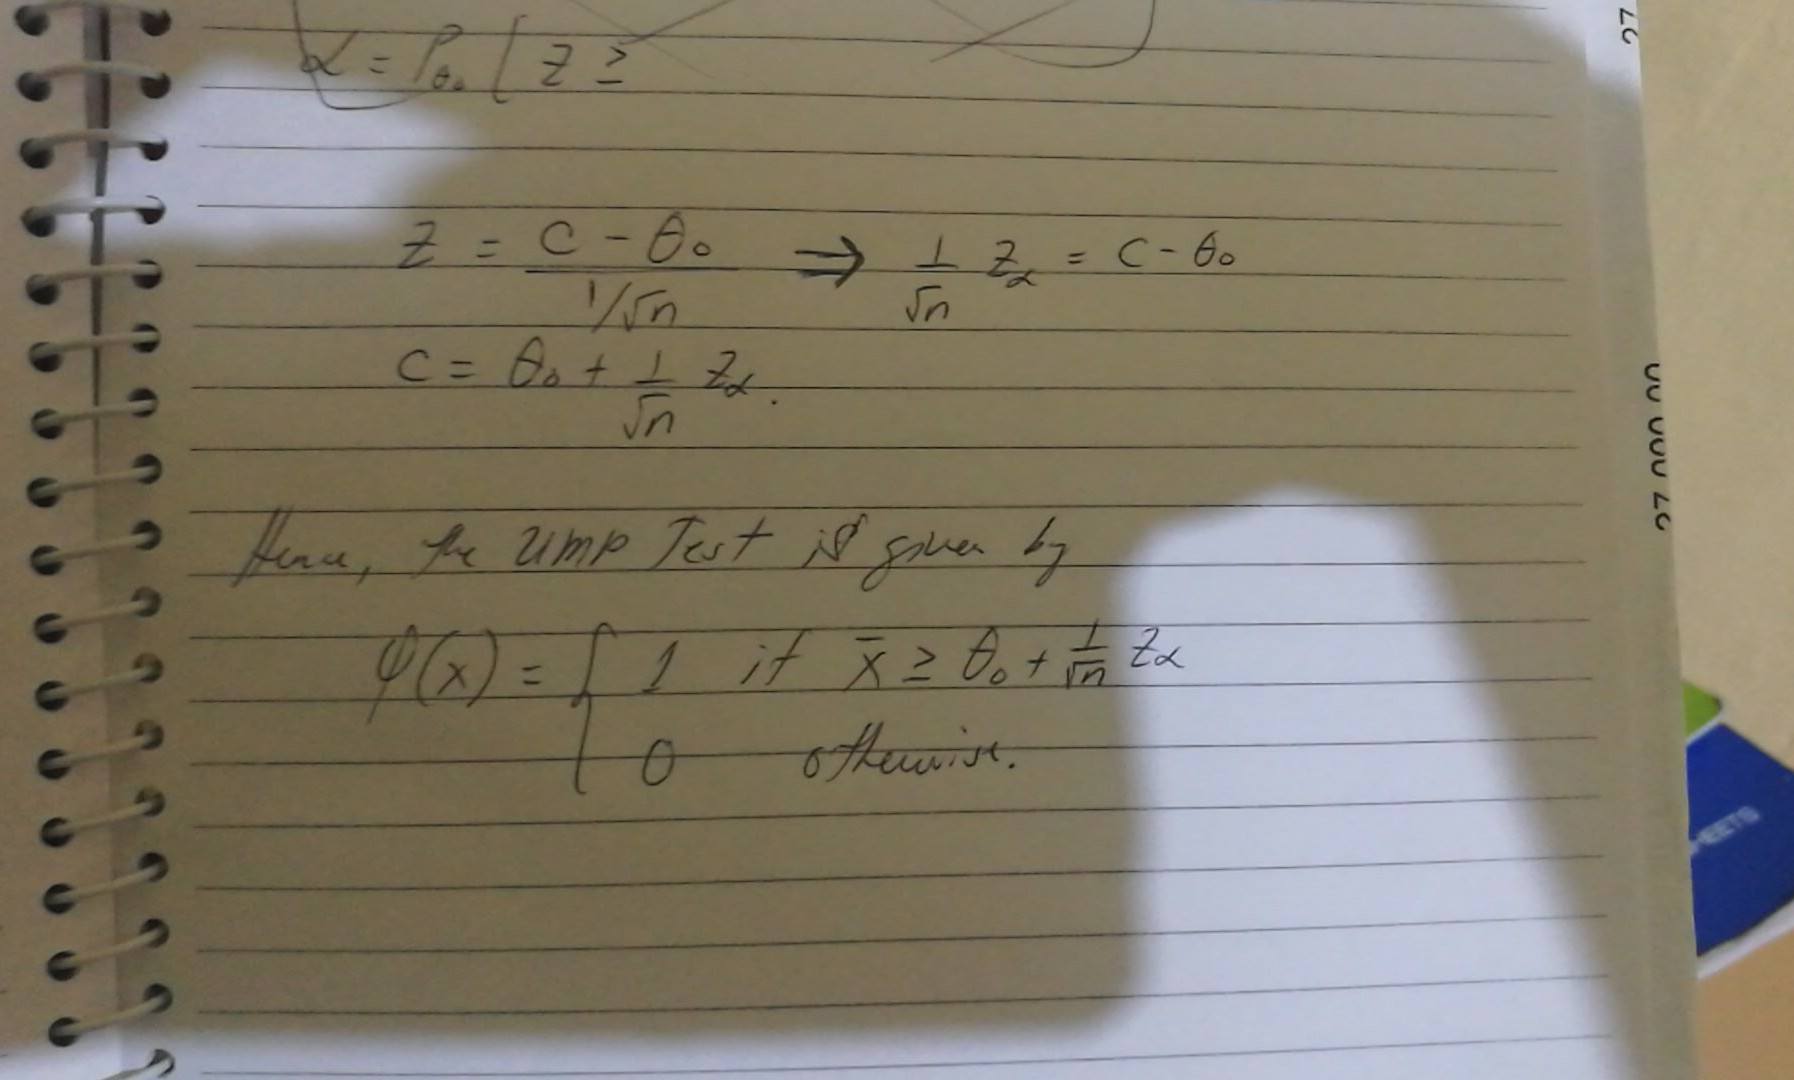 α = P_θ₀ [ Z ≥
Z = (C - θ₀) / (1/√n) ⇒ 1/√n Z_α = C - θ₀
C = θ₀ + 1/√n Z_α.
Hence, the UMP Test is given by
φ(x) = { 1 if x̄ ≥ θ₀ + 1/√n Z_α
0 otherwise.
HEETS